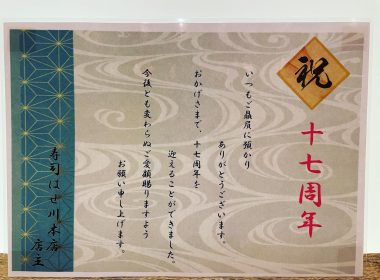 祝
十七周年
いつもご贔屓に預かり
ありがとうございます。
おかげさまで、十七周年を
迎えることができました。
今後とも変わらぬご愛顧賜りますよう
お願い申し上げます。
寿司はせ川本店
店主